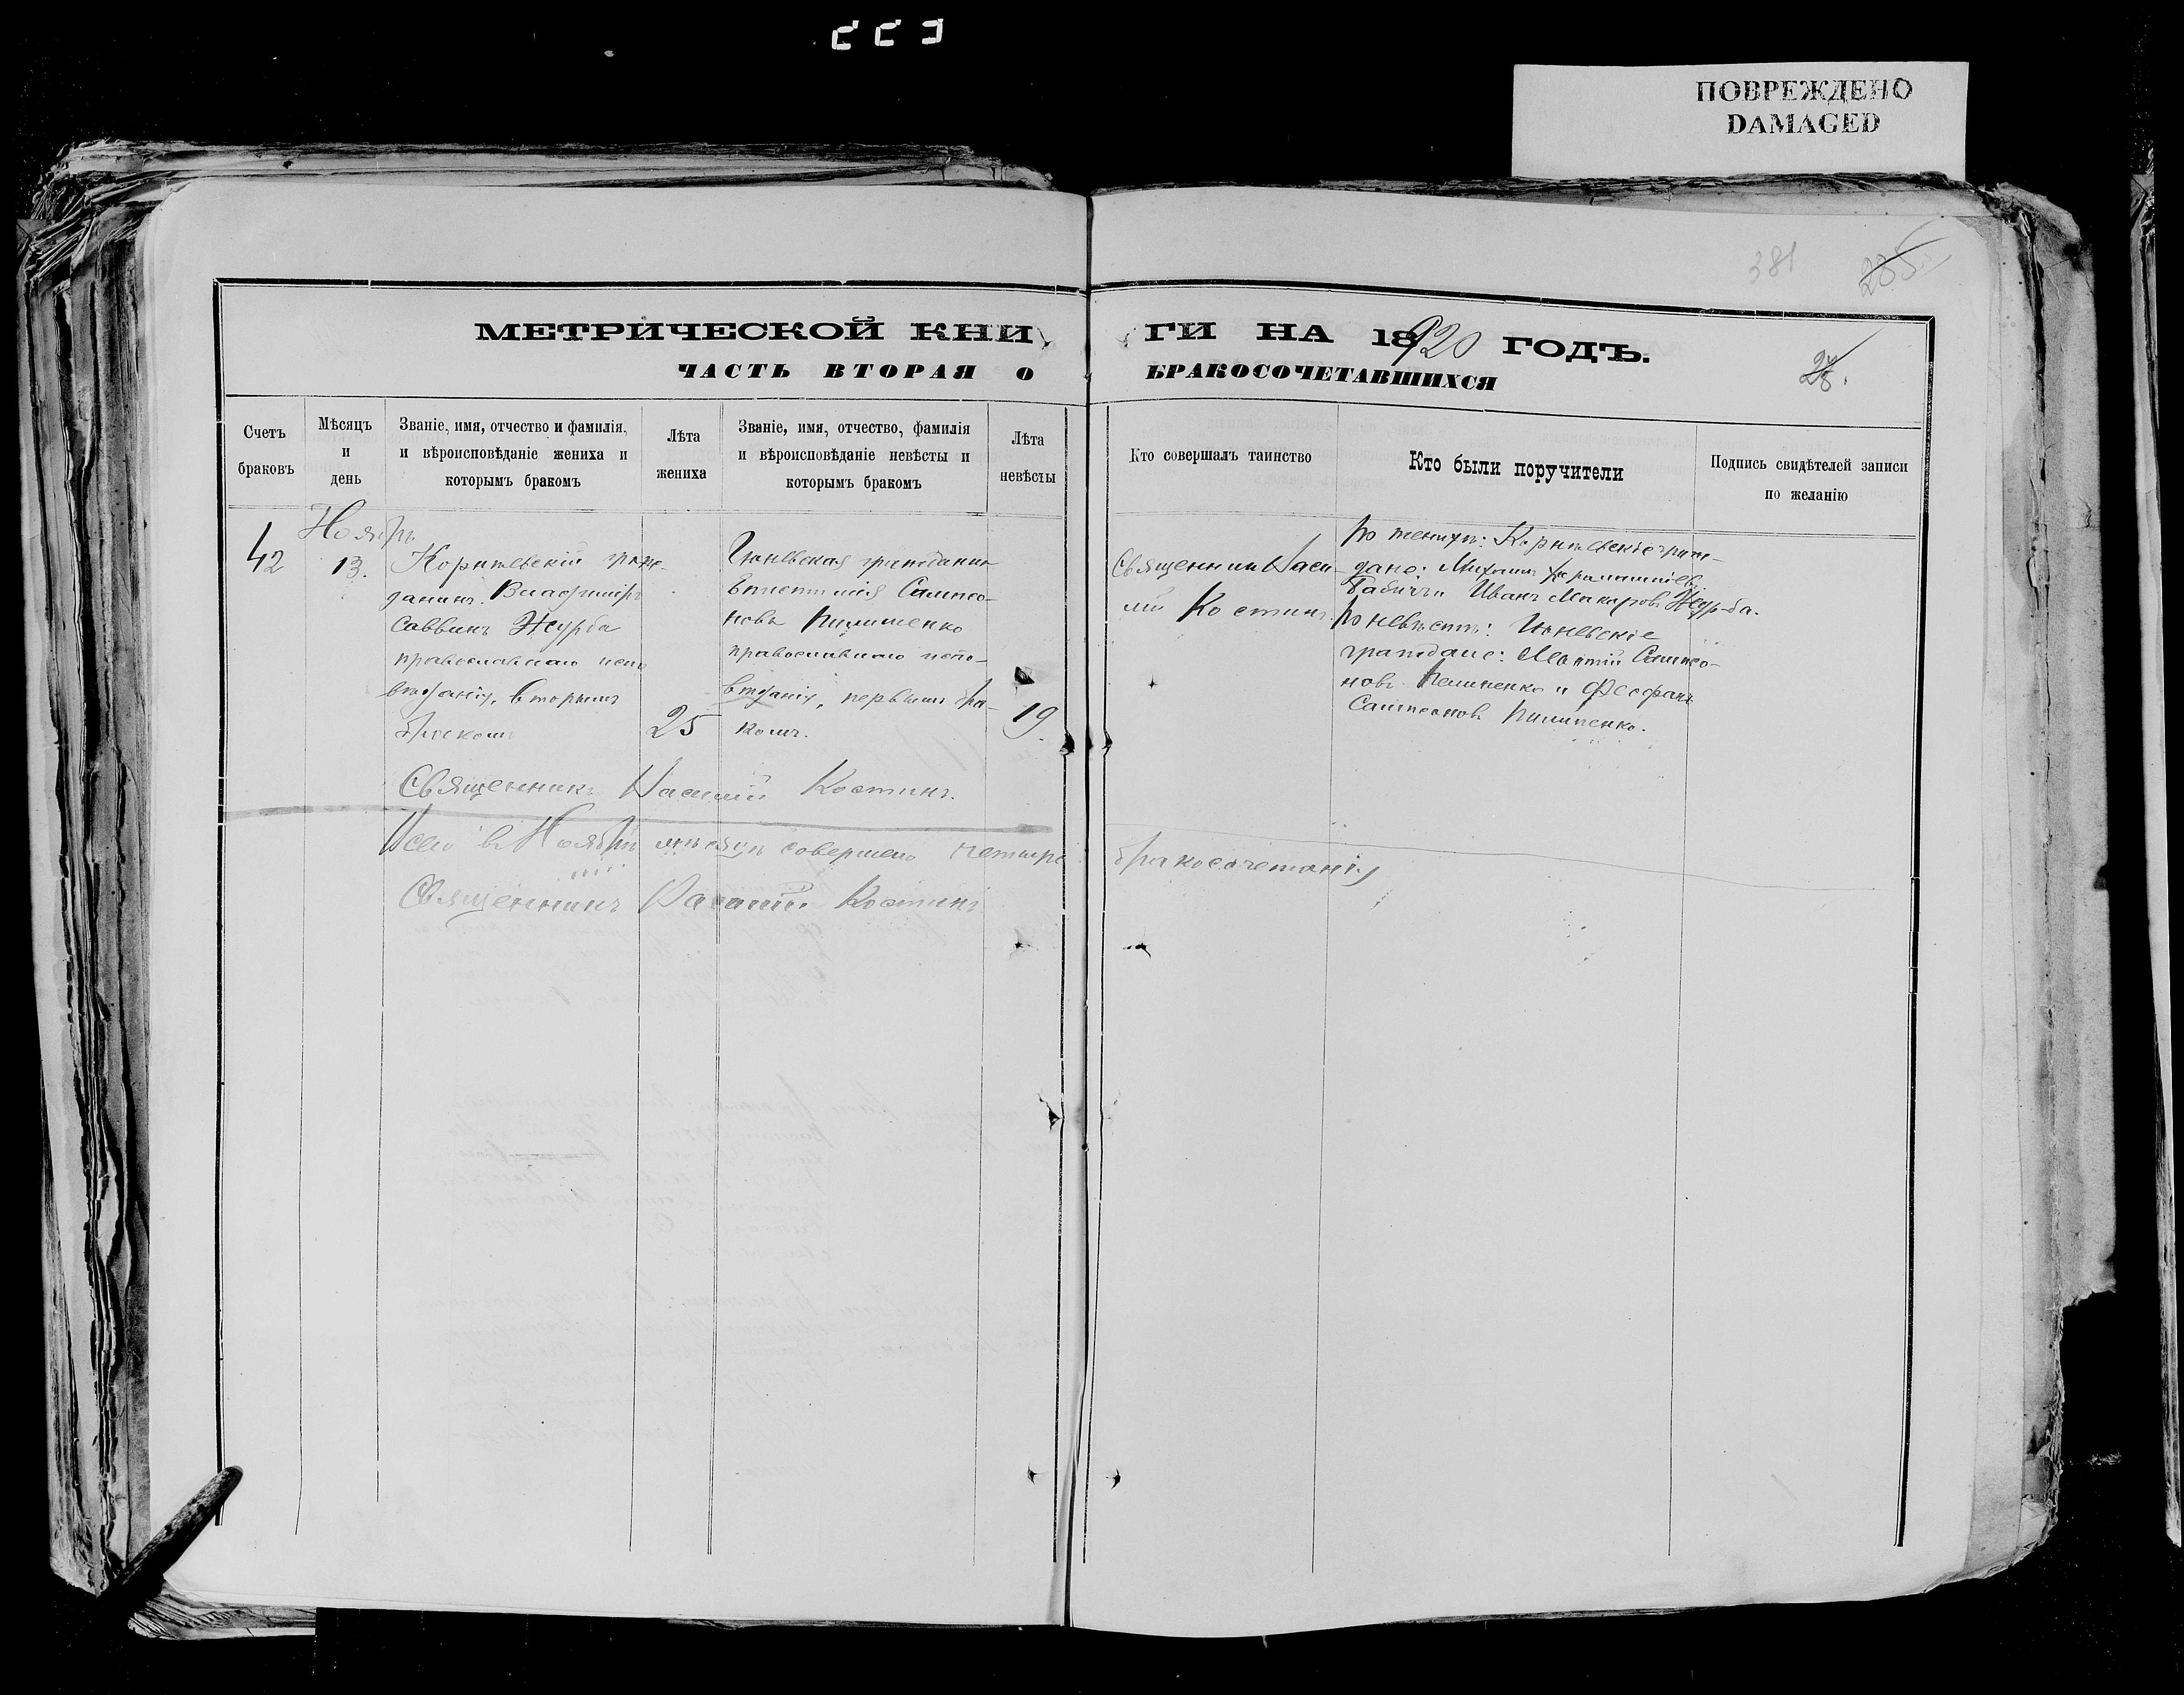 ПОВРЕЖДЕНО
DAMAGED
381
285
МЕТРИЧЕСКОЙ КНИ
ГИ НА 18920 ГОДЪ.
ЧАСТЬ ВТОРАЯ О
БРАКОСОЧЕТАВШИХСЯ
28.
Счетъ
браковъ
Мѣсяцъ
и
день
Званіе, имя, отчество и фамилія,
и вѣроисповѣданіе жениха и
которымъ бракомъ
Лѣта
жениха
Званіе, имя, отчество, фамилія
и вѣроисповѣданіе невѣсты и
которымъ бракомъ
Лѣта
невѣсты
Кто совершалъ таинство
Кто были поручители
Подпись свидѣтелей записи
по желанію
42
Ноябрь
13.
гражданинъ Владиміръ
Саввинъ Журба
православнаго испо
вѣданія, вторымъ
бракомъ
25
гражданка
Сампсо-
нова Пилипенко
православнаго испо-
вѣданія, первымъ бра-
комъ.
19
Священникъ Васи-
лій Костинъ
По женихѣ:
граж-
дане: Михаилъ
Бабичъ и Иванъ Макаровъ Журба.
По невѣстѣ:
граждане: Сампсо-
новъ Пилипенко и Феофанъ
Сампсоновъ Пилипенко.
Священникъ Василій Костинъ.
Всего въ Ноябрѣ мѣсяцѣ совершено четыре
бракосочетанія
Священникъ Василій Костинъ